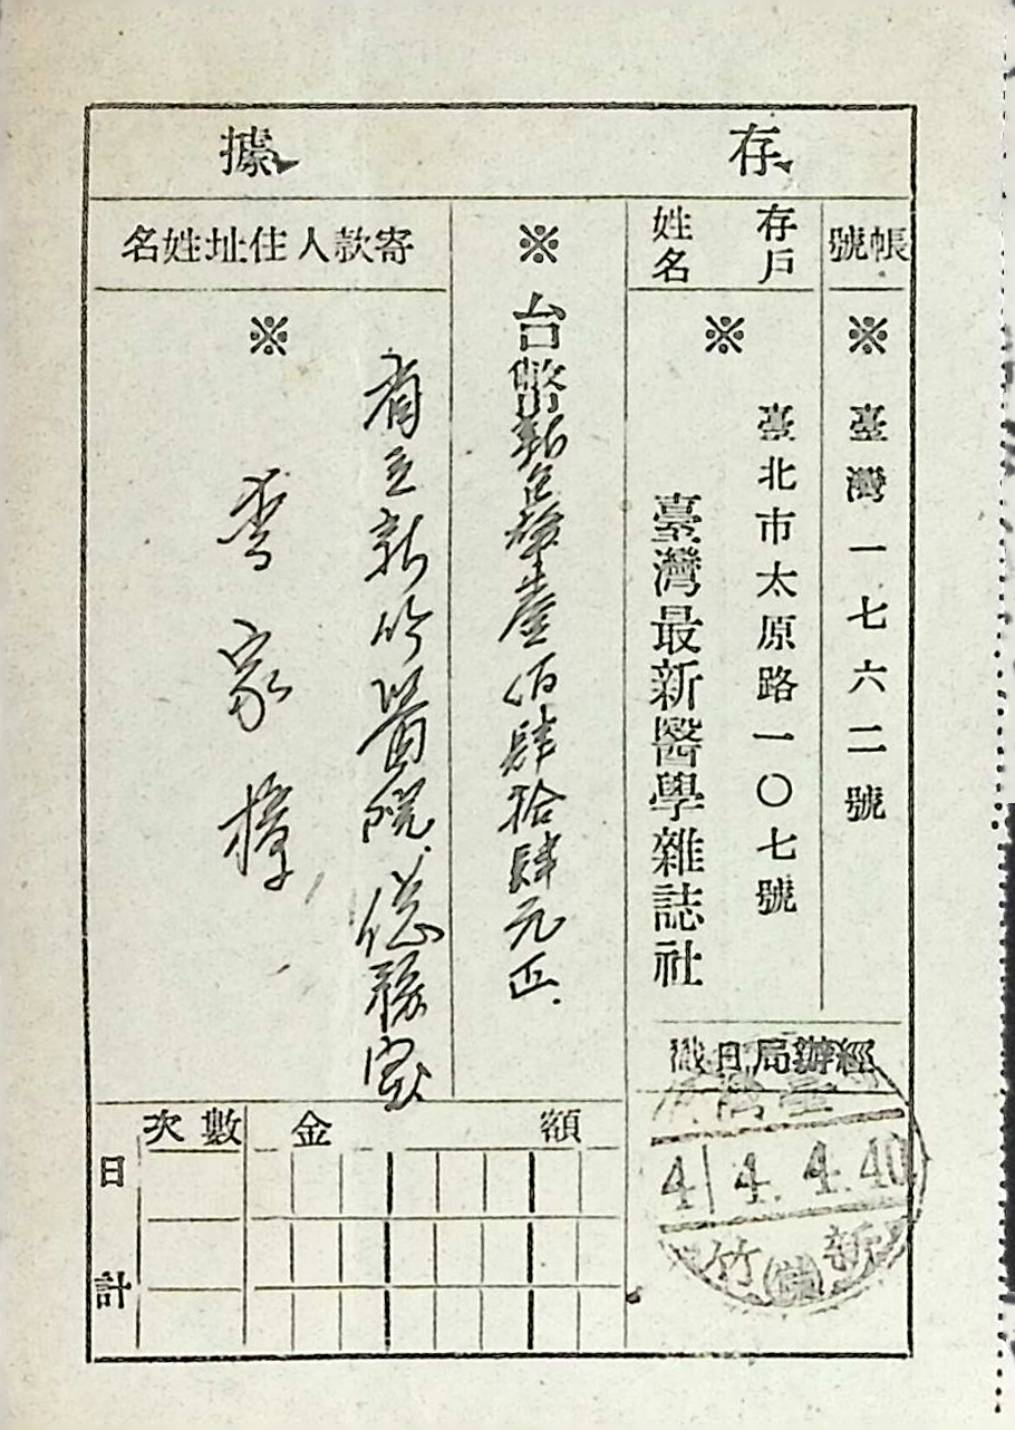 存據
帳號
※臺灣一七六二號
存戶
姓名
※
臺北市太原路一〇七號
臺灣最新醫學雜誌社
※台幣新台幣壹佰肆拾肆元正.
寄款人住址姓名
※
省立新竹醫院總務室
李家樟
經辦局日戳
臺灣
41 4. 4. 40
新竹
次數
金額
日計